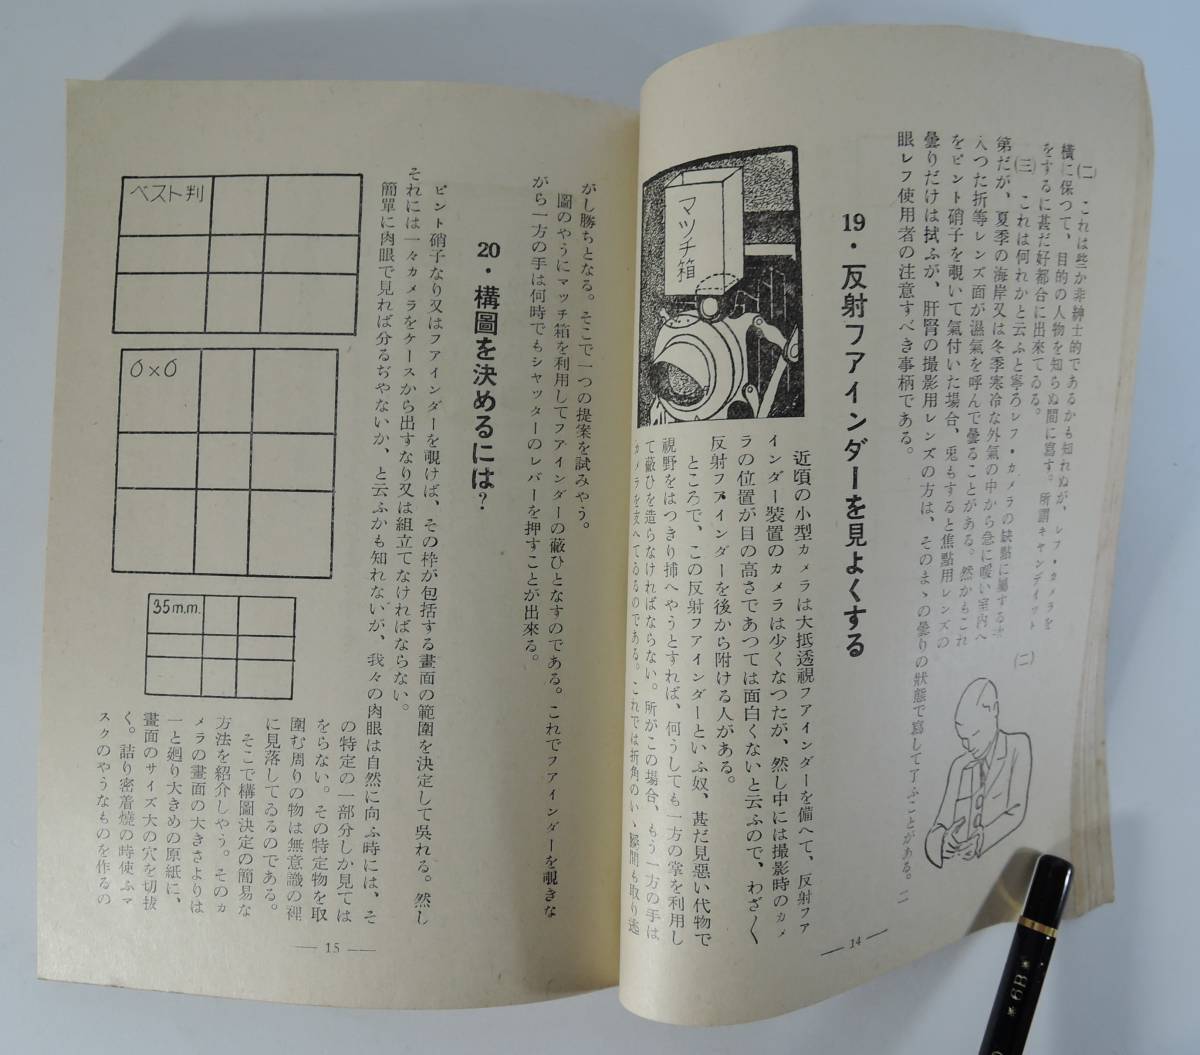 (二) これは些か非紳士的であるかも知れぬが、レフ・カメラを
横に保つて、目的の人物を知らぬ間に寫す。所謂キャンデイツト
をするに甚だ好都合に出來てる。
(三) これは何れかと云ふと寧ろレフ・カメラの缺點に屬する次
第だが、夏季の海岸又は冬季寒冷な外氣の中から急に暖い室内へ
入つた折等レンズ面が濕氣を呼んで曇ることがある。然かもこれ
をピント硝子を覗いて氣付いた場合、兎もすると焦點用レンズの
曇りだけは拭ふが、肝腎の撮影用レンズの方は、そのまゝの曇りの狀態で寫して了ふことがある。二
眼レフ使用者の注意すべき事柄である。
(二)
19・反射フアインダーを見よくする
マツチ箱
近頃の小型カメラは大抵透視フアインダーを備へて、反射フア
インダー裝置のカメラは少くなつたが、然し中には撮影時のカメ
ラの位置が目の高さであつては面白くないと云ふので、わざ〱
反射フアインダーを後から附ける人がある。
ところで、この反射フアインダーといふ奴、甚だ見惡い代物で
視野をはつきり捕へやうとすれば、何うしても一方の掌を利用し
て蔽ひを造らなければならない。所がこの場合、もう一方の手は
カメラを支へてゐるのである。これでは折角のいゝ瞬間も取り逃
— 14 —
がし勝ちとなる。そこで一つの提案を試みやう。
圖のやうにマッチ箱を利用してフアインダーの蔽ひとなすのである。これでフアインダーを覗きな
がら一方の手は何時でもシャッターのレバーを押すことが出來る。
20・構圖を決めるには?
ピント硝子なり又はフアインダーを覗けば、その枠が包括する畫面の範圍を決定して吳れる。然し
それには一々カメラをケースから出すなり又は組立てなければならない。
簡單に肉眼で見れば分るぢやないか、と云ふかも知れないが、我々の肉眼は自然に向ふ時には、そ
の特定の一部分しか見ては
をらない。その特定物を取
圍む周りの物は無意識の裡
に見落してゐるのである。
そこで構圖決定の簡易な
方法を紹介しやう。そのカ
メラの畫面の大きさよりは
一と廻り大きめの原紙に、
畫面のサイズ大の穴を切拔
く。詰り密着燒の時使ふマ
スクのやうなものを作るの
ベスト判
6×6
35m.m.
— 15 —
*6B*